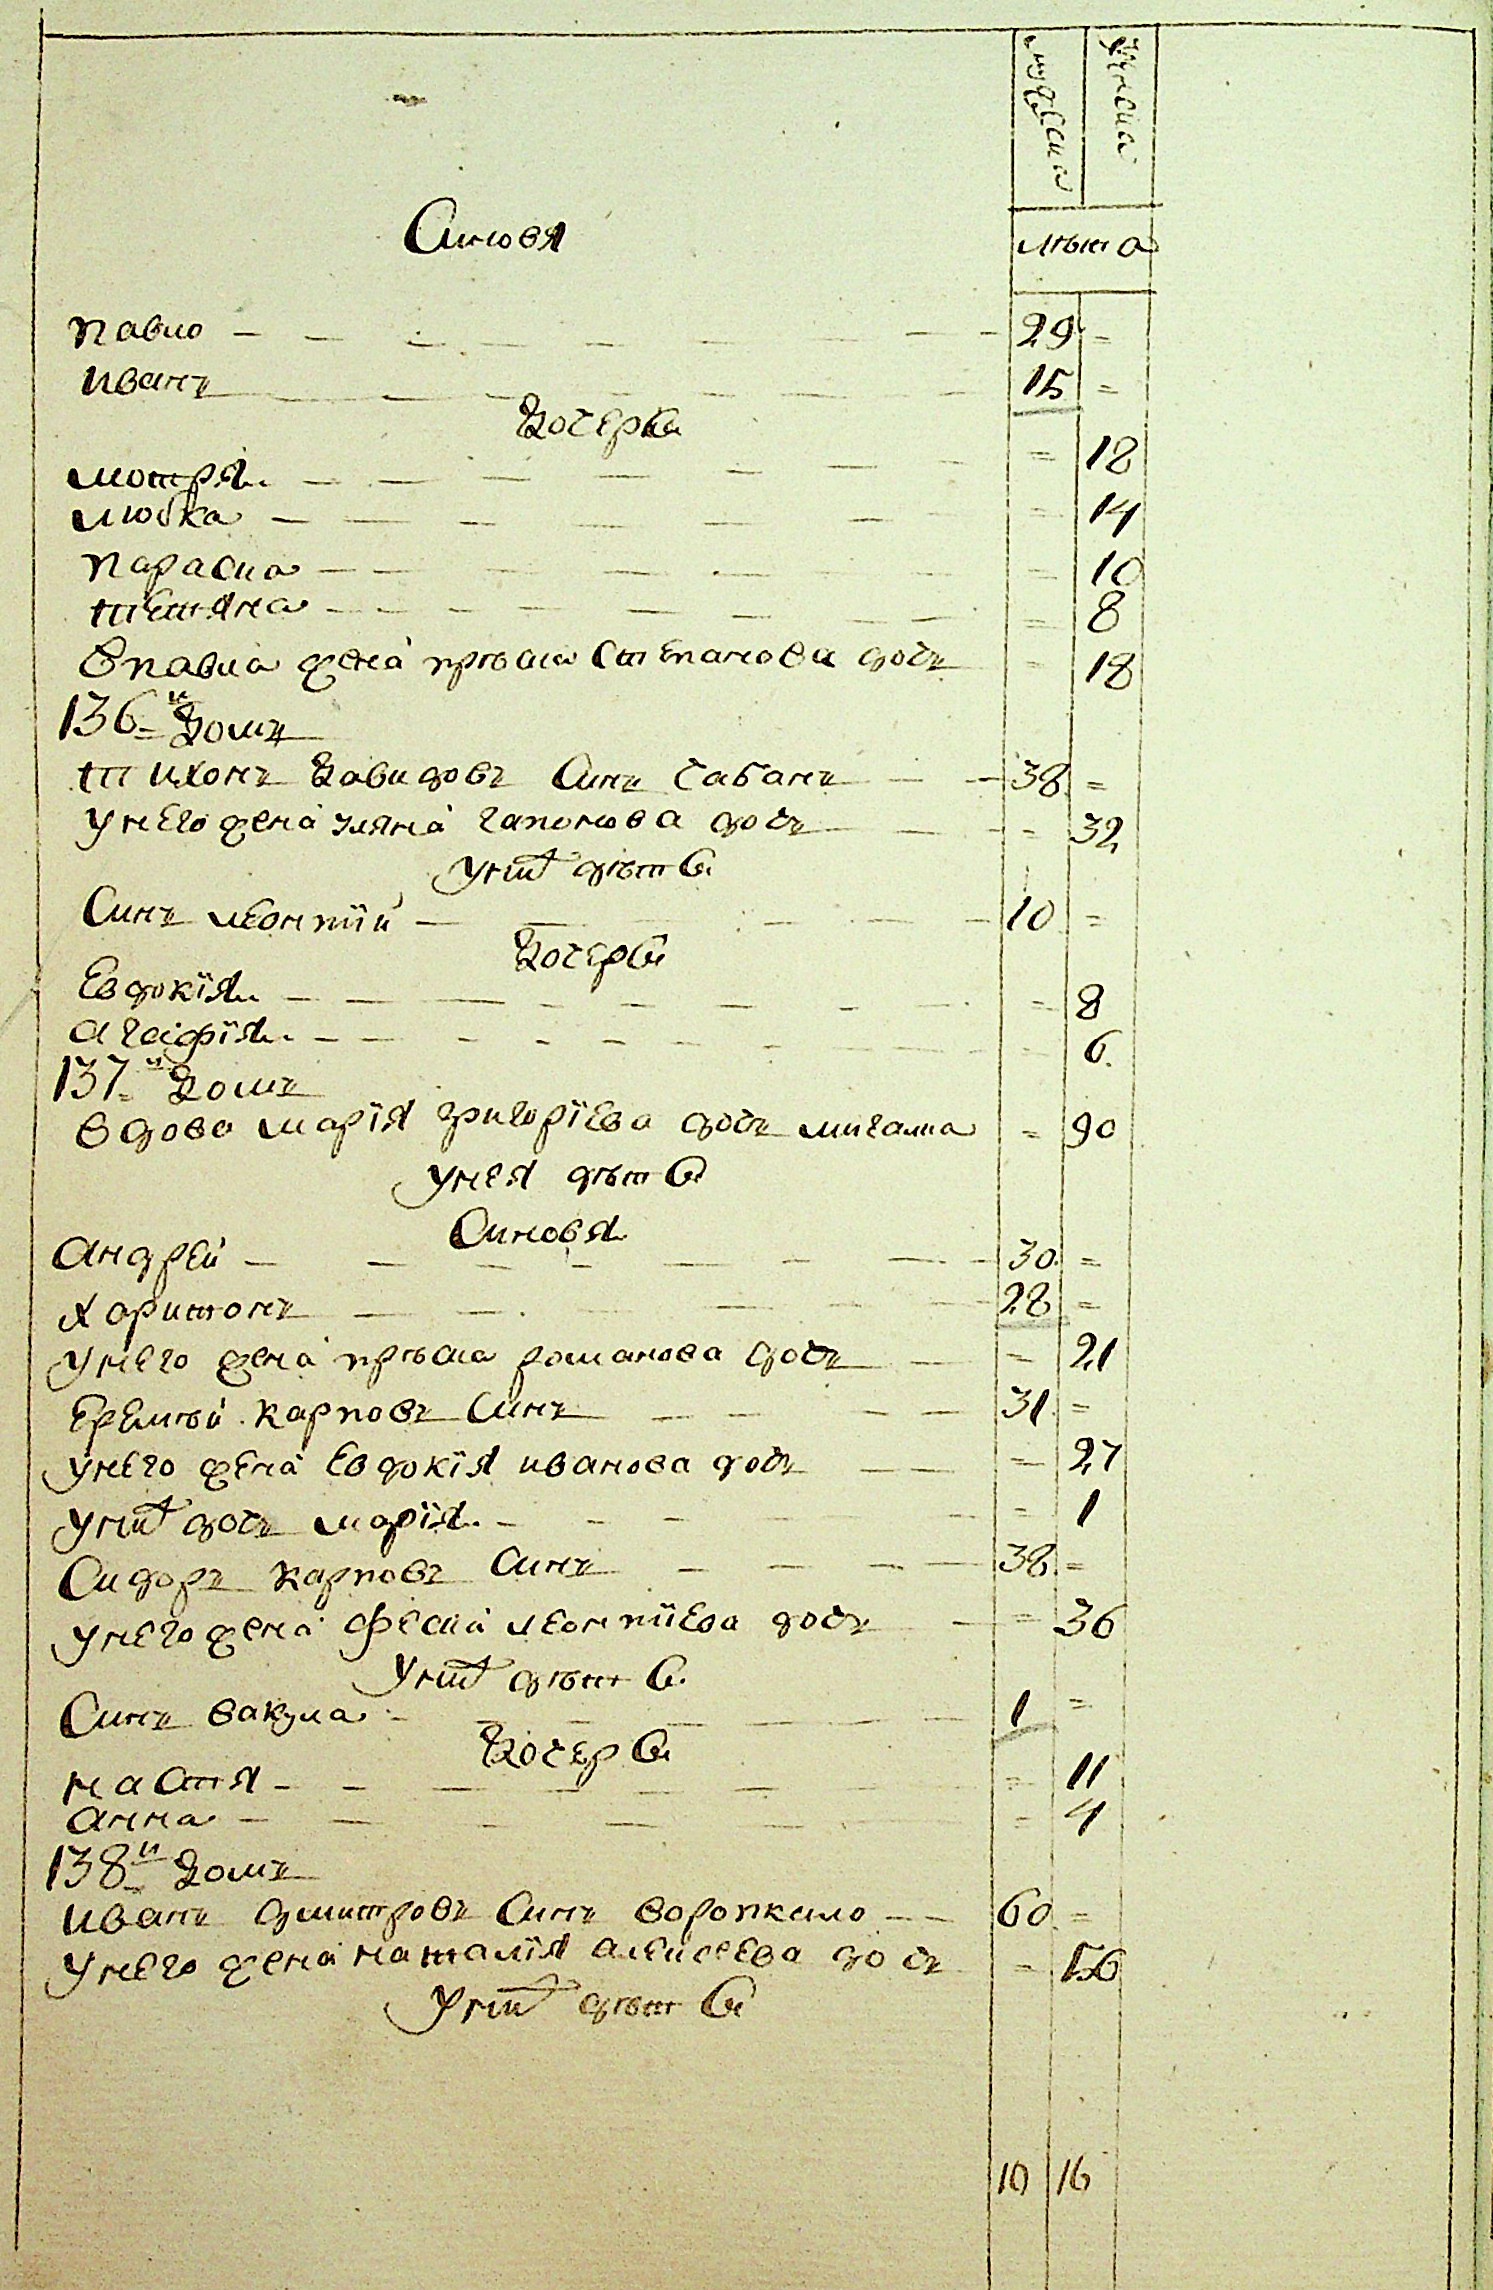 мужеска
женска
Синовя
лѣта
павло — — — 29 =
иванъ — — — 15 =
Дочерѣ
мотря — — — = 18
любка — — — = 14
параска — — — = 10
тетяна — — — = 8
Впавла жена пріська Степанова дочъ = 18
136-й Домъ
тихонъ Давидовъ Синъ чабанъ — — 38 =
Унего жена уляна гапонова дочъ — = 32
Унихъ дѣти
Синъ леонтій — — — 10 =
Дочерѣ
Евдокія — — — = 8
агафія — — — = 6
137-й Домъ
вдова марія григоріева дочъ мигалка = 90
Унея дѣти
Синовя
андрей — — — 30 =
харитонъ — — — 28 =
Унего жена пріська романова дочъ — = 21
Еремѣй карповъ Синъ — — — 31 =
Унего жена Евдокія иванова дочъ — — = 27
Унихъ дочъ марія — — — = 1
Сидоръ карповъ Синъ — — — 38 =
Унего жена феска леонтіева дочъ — = 36
Унихъ дѣти
Синъ вакула — — — 1 =
Дочерѣ
настя — — — = 11
анна — — — = 4
138й Домъ
иванъ дмитровъ Синъ воропкало — — 60 =
Унего жена наталія алеисеева дочъ = 56
Унихъ дѣти
10 16